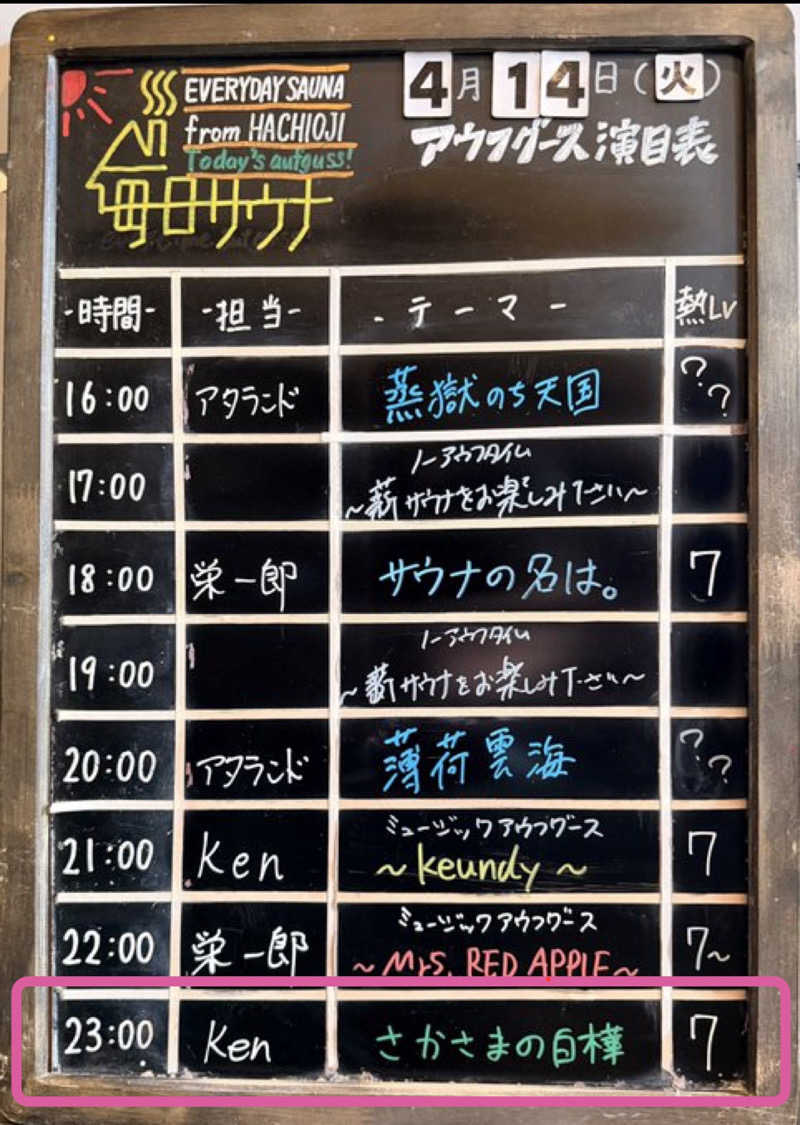 EVERYDAY SAUNA
from HACHIOJI
Today's aufguss!
毎日サウナ
4月14日(火)
アウフグース演目表
-時間- -担当- -テーマ- 熱Lv
16:00 アタランド 蒸獄のち天国 ??
17:00 ノーアウフタイム
～薪サウナをお楽しみ下さい～
18:00 栄一郎 サウナの名は。 7
19:00 ノーアウフタイム
～薪サウナをお楽しみ下さい～
20:00 アタランド 薄荷雲海 ??
21:00 Ken ミュージックアウフグース 7
～keundy～
22:00 栄一郎 ミュージックアウフグース 7～
～Mrs. RED APPLE～
23:00 Ken さかさまの白樺 7